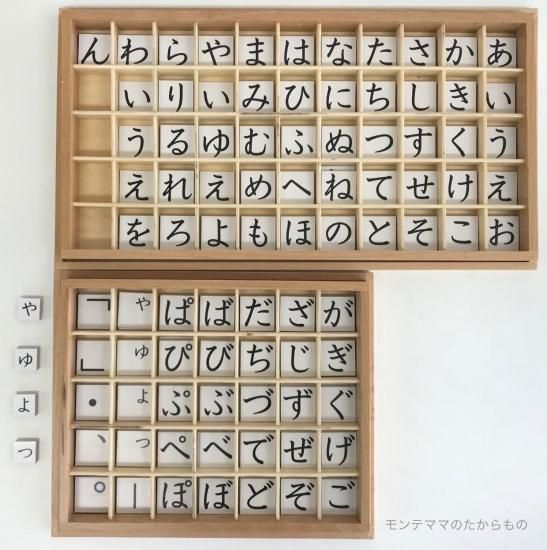 あいうえお
かきくけこ
さしすせそ
たちつてと
なにぬねの
はひふへほ
まみむめも
やいゆえよ
らりるれろ
わいうえを
ん
がぎぐげご
ざじずぜぞ
だぢづでど
ばびぶべぼ
ぱぴぷぺぽ
ゃゅょっー
「」・、。
やゆよつ
モンテママのたからもの